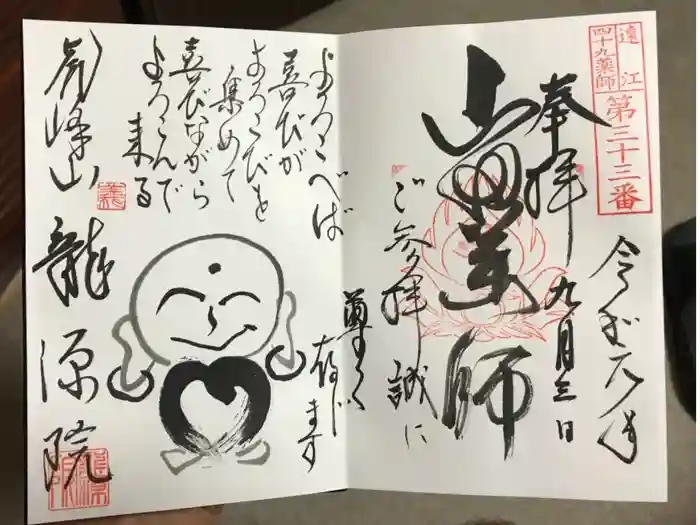 遠江
四十九薬師
第三十三番
奉拝
令和元年
九月三日
山田薬師
ご参拝誠に
尊く存じます
よろこべば
喜びが
よろこびを
集めて
喜びながら
よろこんで
来る
龍源院